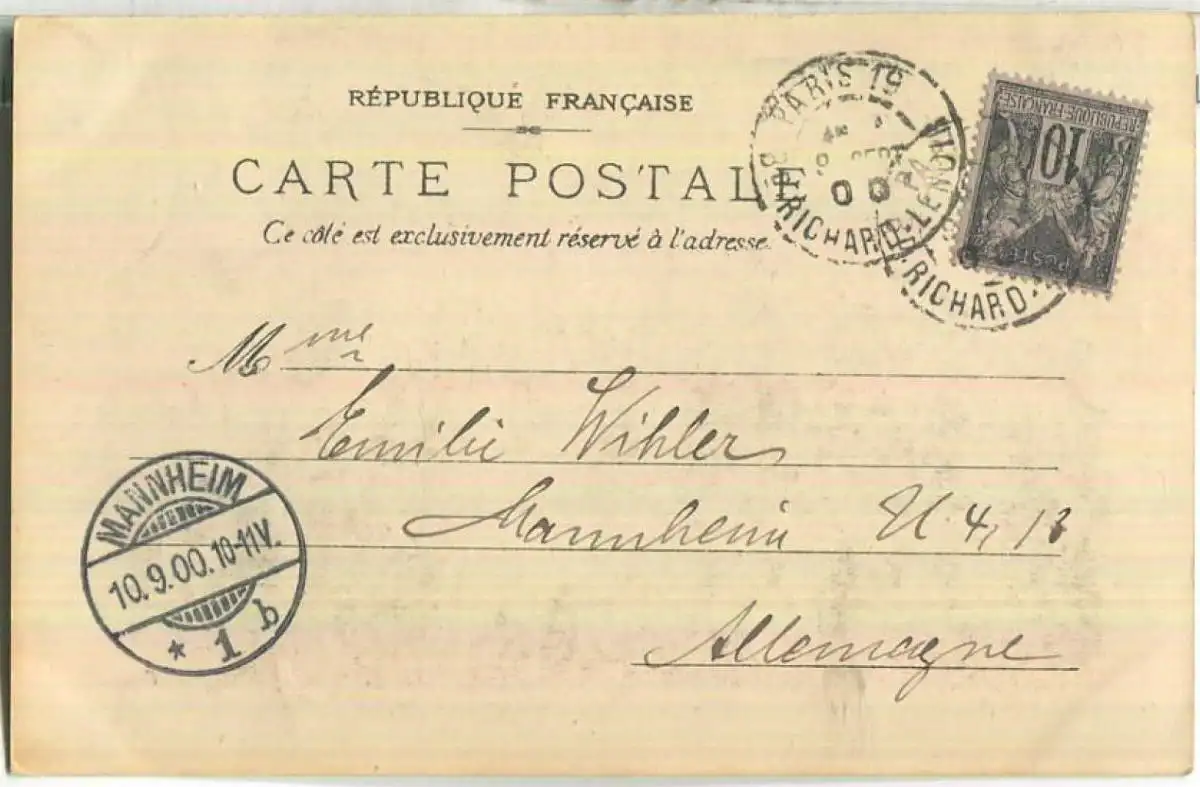 RÉPUBLIQUE FRANÇAISE
CARTE POSTALE
Ce côté est exclusivement réservé à l'adresse.
PARIS 19
00
RICHARD-LENOIR
PA
RICHARD
RÉPUBLIQUE FRANÇAISE
10
POSTE
Mme
Emilie Wihler
Mannheim U 4, 13
Allemagne
MANNHEIM
10.9.00.10-11V.
* 1 b